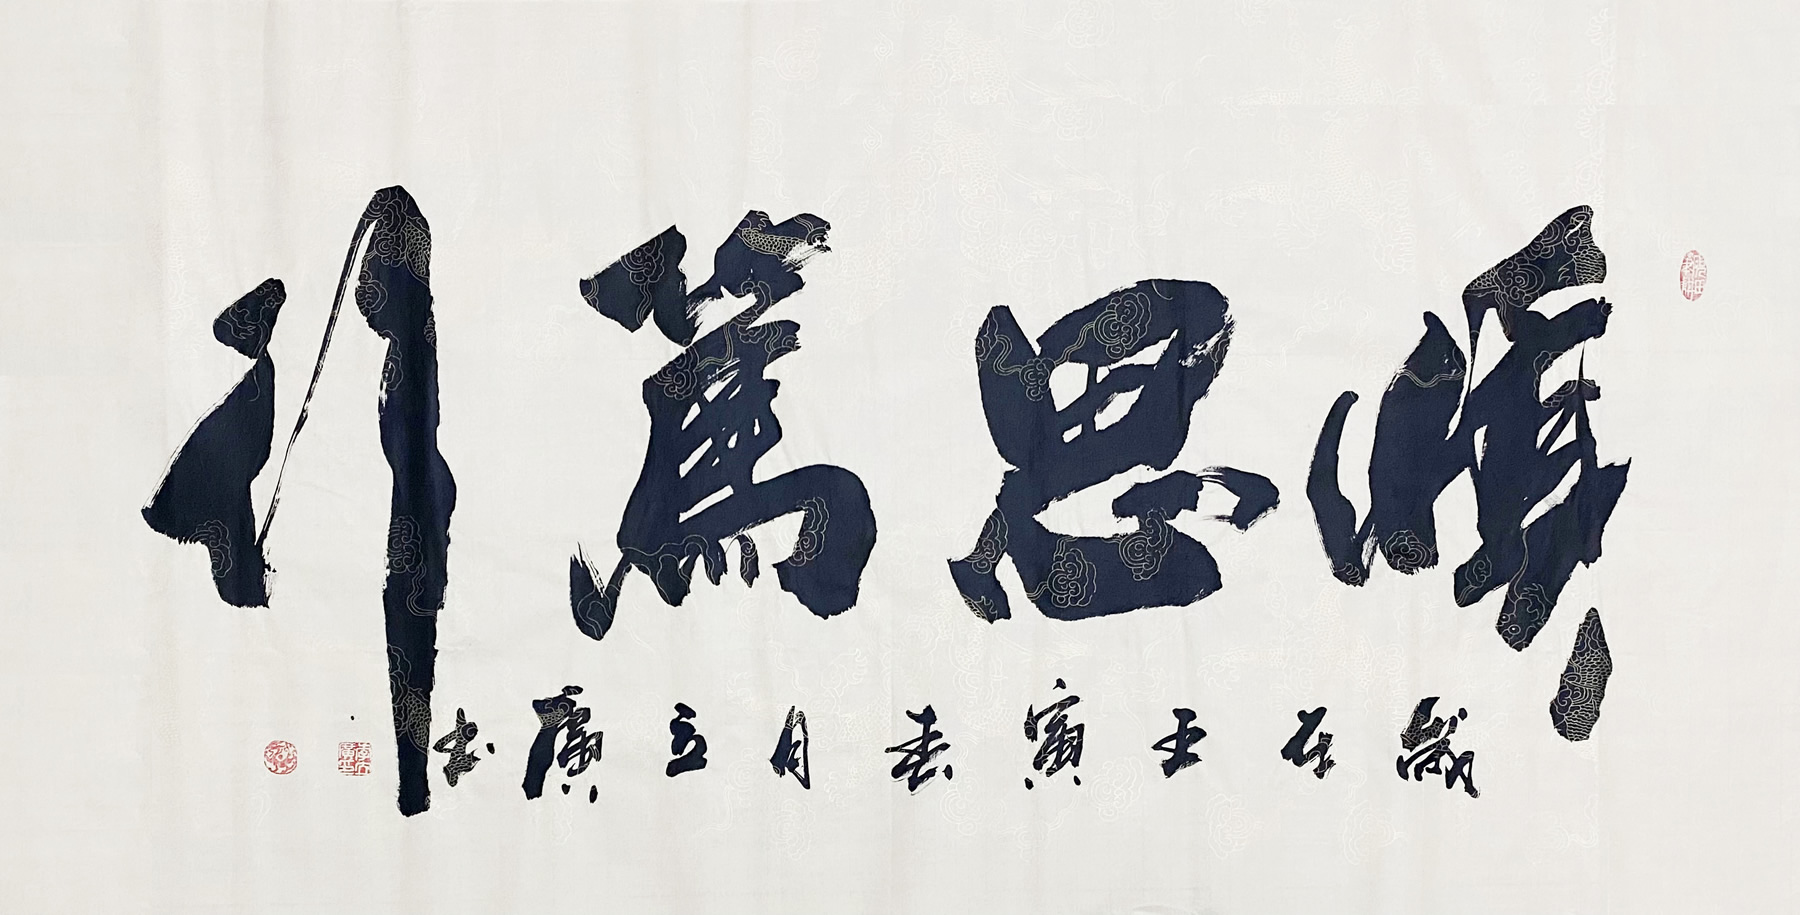 慎思篤行
歲在壬寅春月立廣书